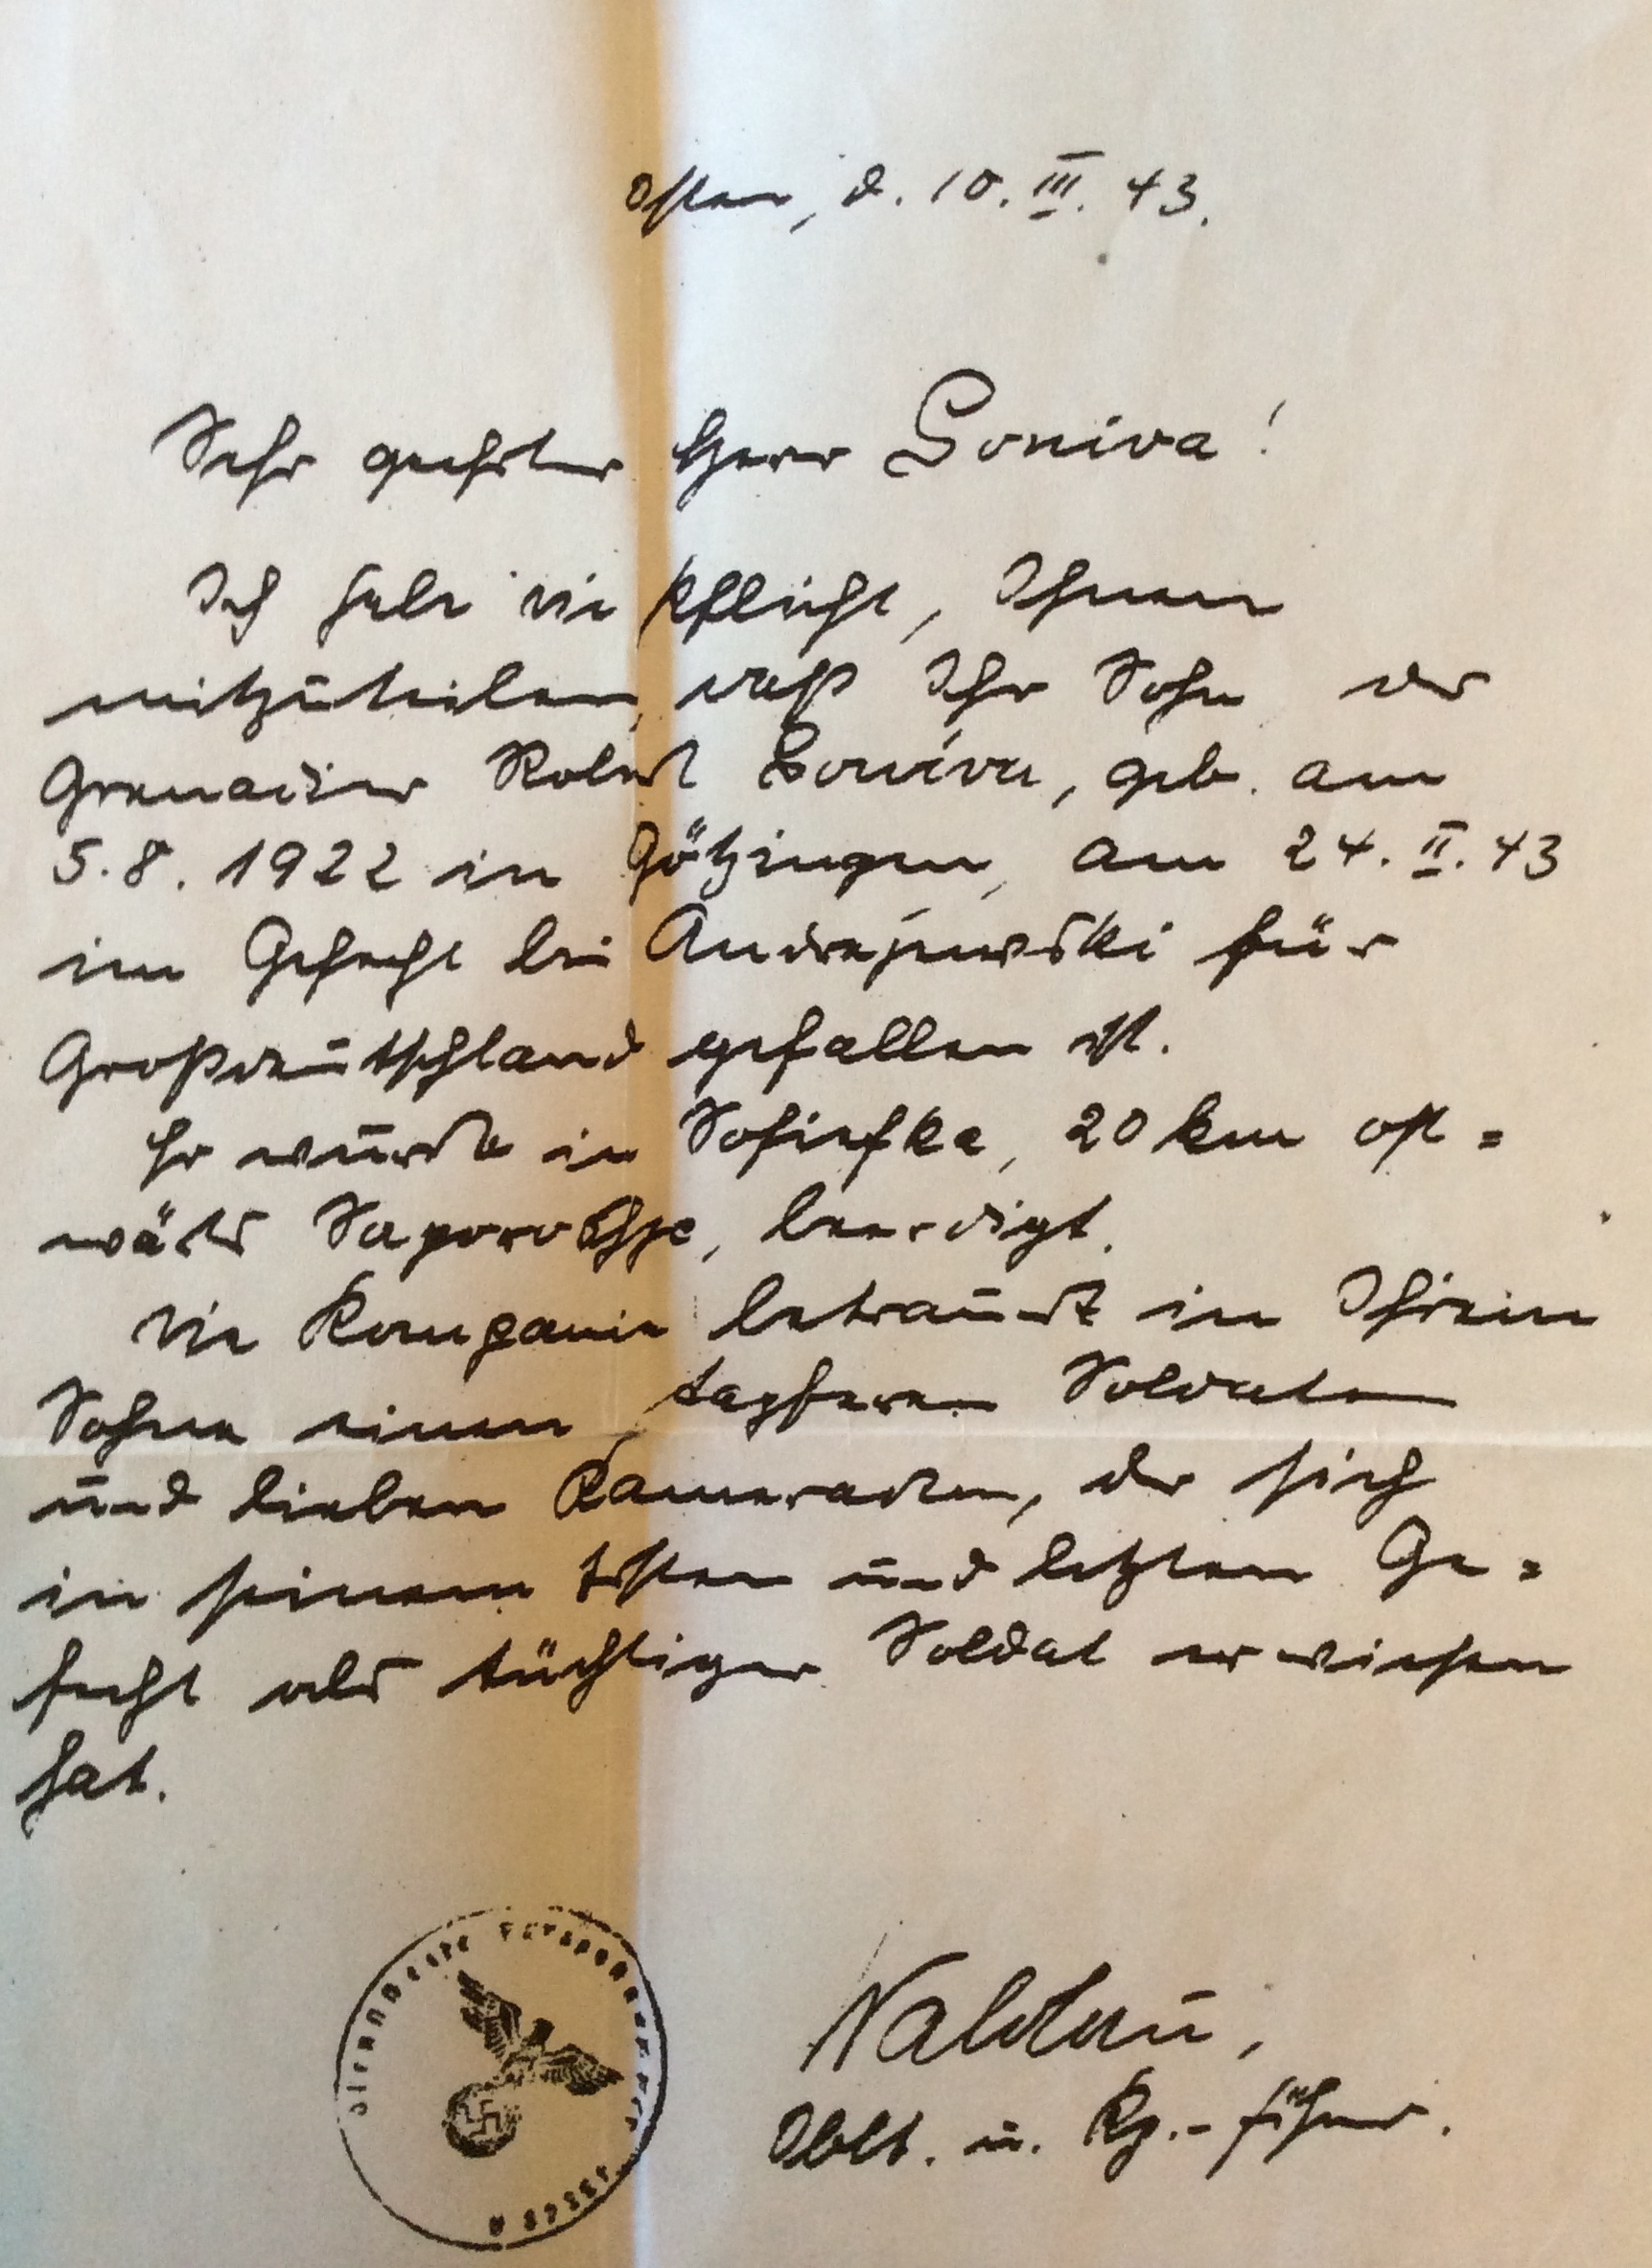 Osten, d. 10. III. 43.
Sehr geehrter Herr Goniva!
Ich habe die Pflicht, Ihnen
mitzuteilen, daß Ihr Sohn der
Grenadier Robert Goniva, geb. am
5.8.1922 in Götzingen, am 24. II. 43
im Gefecht bei Andrejewski für
Großdeutschland gefallen ist.
Er wurde in Sofiefka, 20 km ost=
wärts Saporoshje, beerdigt.
Die Kompanie betrauert in Ihrem
Sohne einen tapferen Soldaten
und lieben Kameraden, der sich
in seinem ersten und letzten Ge=
fecht als tüchtiger Soldat erwiesen
hat.
Dienststelle Feldpostnummer
Oblt. u. Kp.-Führer.